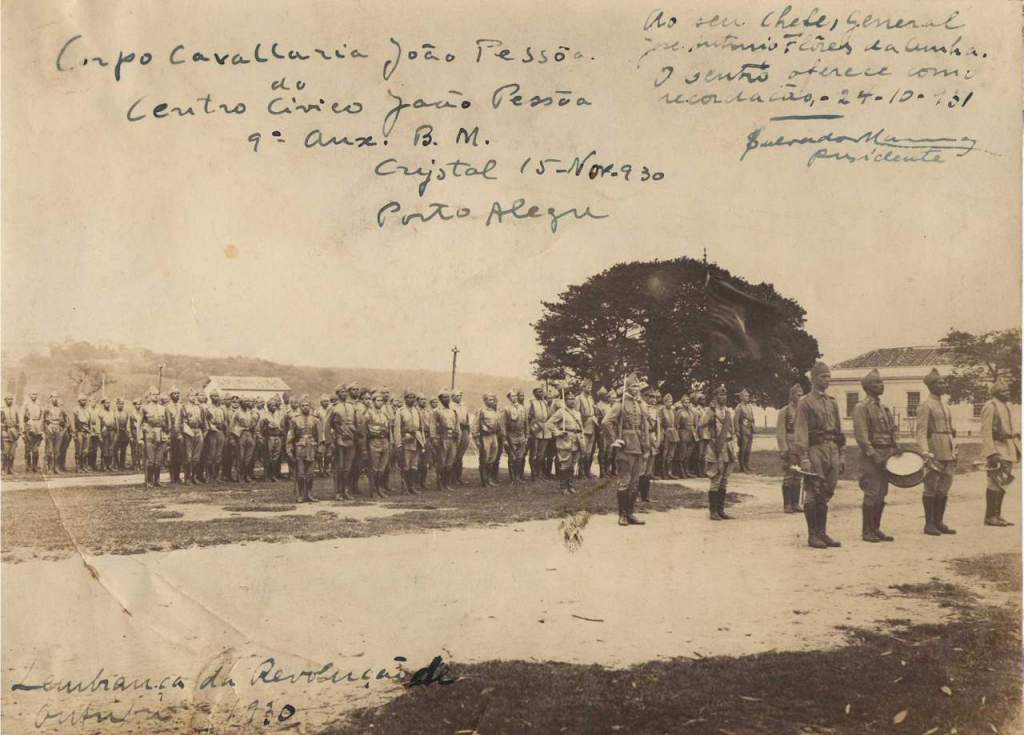 Corpo Cavallaria João Pessôa.
do
Centro Civico João Pessôa
9º Aux. B. M.
Crystal 15-Nov-930
Porto Alegre
Ao seu Chefe, General
José Antonio Flôres da Cunha.
O centro oferece como
recordação,- 24-10-931
Salvador
presidente
Lembrança da Revolução de
Outubro 1930